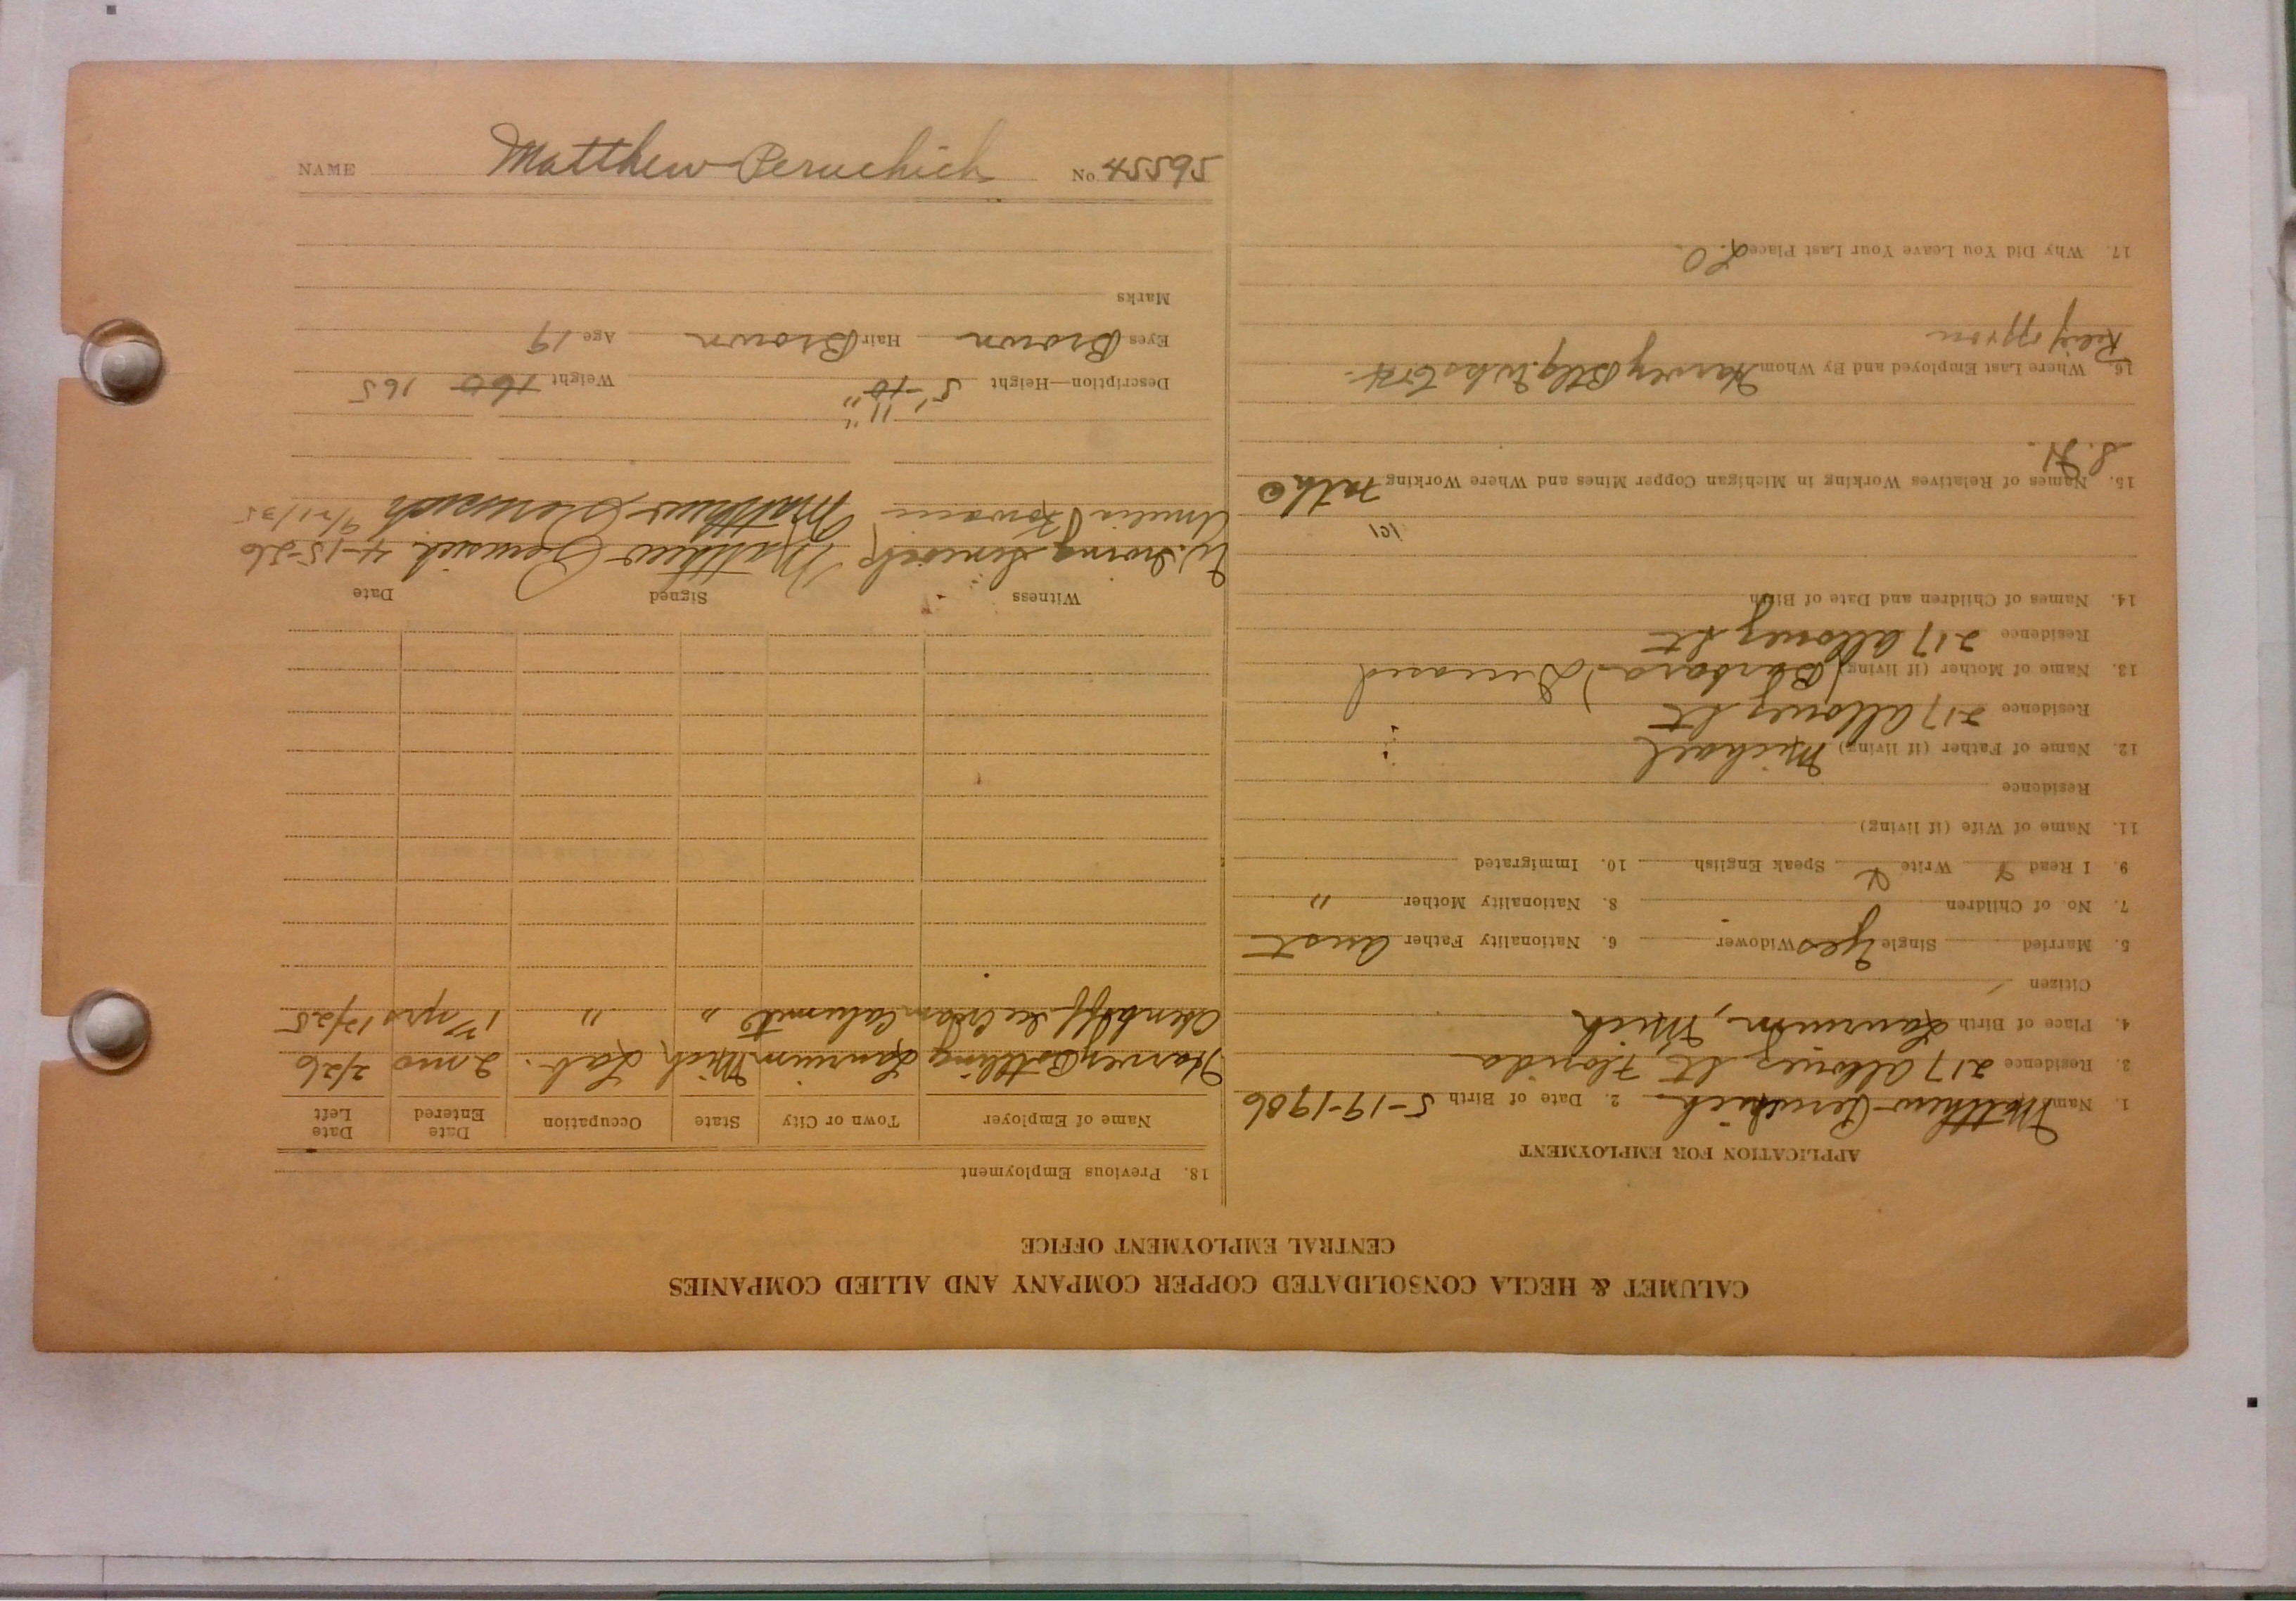 CALUMET & HECLA CONSOLIDATED COPPER COMPANY AND ALLIED COMPANIES
CENTRAL EMPLOYMENT OFFICE
APPLICATION FOR EMPLOYMENT
1. Name Matthew Peruchich 2. Date of Birth 5-19-1906
3. Residence 217 Allouez St Florida
4. Place of Birth Laurium, Mich
Citizen
5. Married Single Yes Widower 6. Nationality Father Aust
7. No. of Children 8. Nationality Mother "
9. I Read Write Speak English 10. Immigrated
11. Name of Wife (if living)
Residence
12. Name of Father (if living) Michael
Residence 217 Allouez St
13. Name of Mother (if living) (Barbara) Deceased
Residence 217 Allouez St
14. Names of Children and Date of Birth
15. Names of Relatives Working in Michigan Copper Mines and Where Working
16. Where Last Employed and By Whom Harvey Btlg.
17. Why Did You Leave Your Last Place L.O.
18. Previous Employment
Name of Employer Town or City State Occupation Date Entered Date Left
Harvey Bottling Laurium Mich Lab. 2 mo 2/26
Ice Cream Calumet " " yrs 12/25
Witness Signed Date
Matthew Perusich 4-15-26
Amelia Matthew Perusich
11"
Description—Height 5'-10" Weight 160 165
Eyes Brown Hair Brown Age 19
Marks
NAME Matthew Peruchich No. 45595